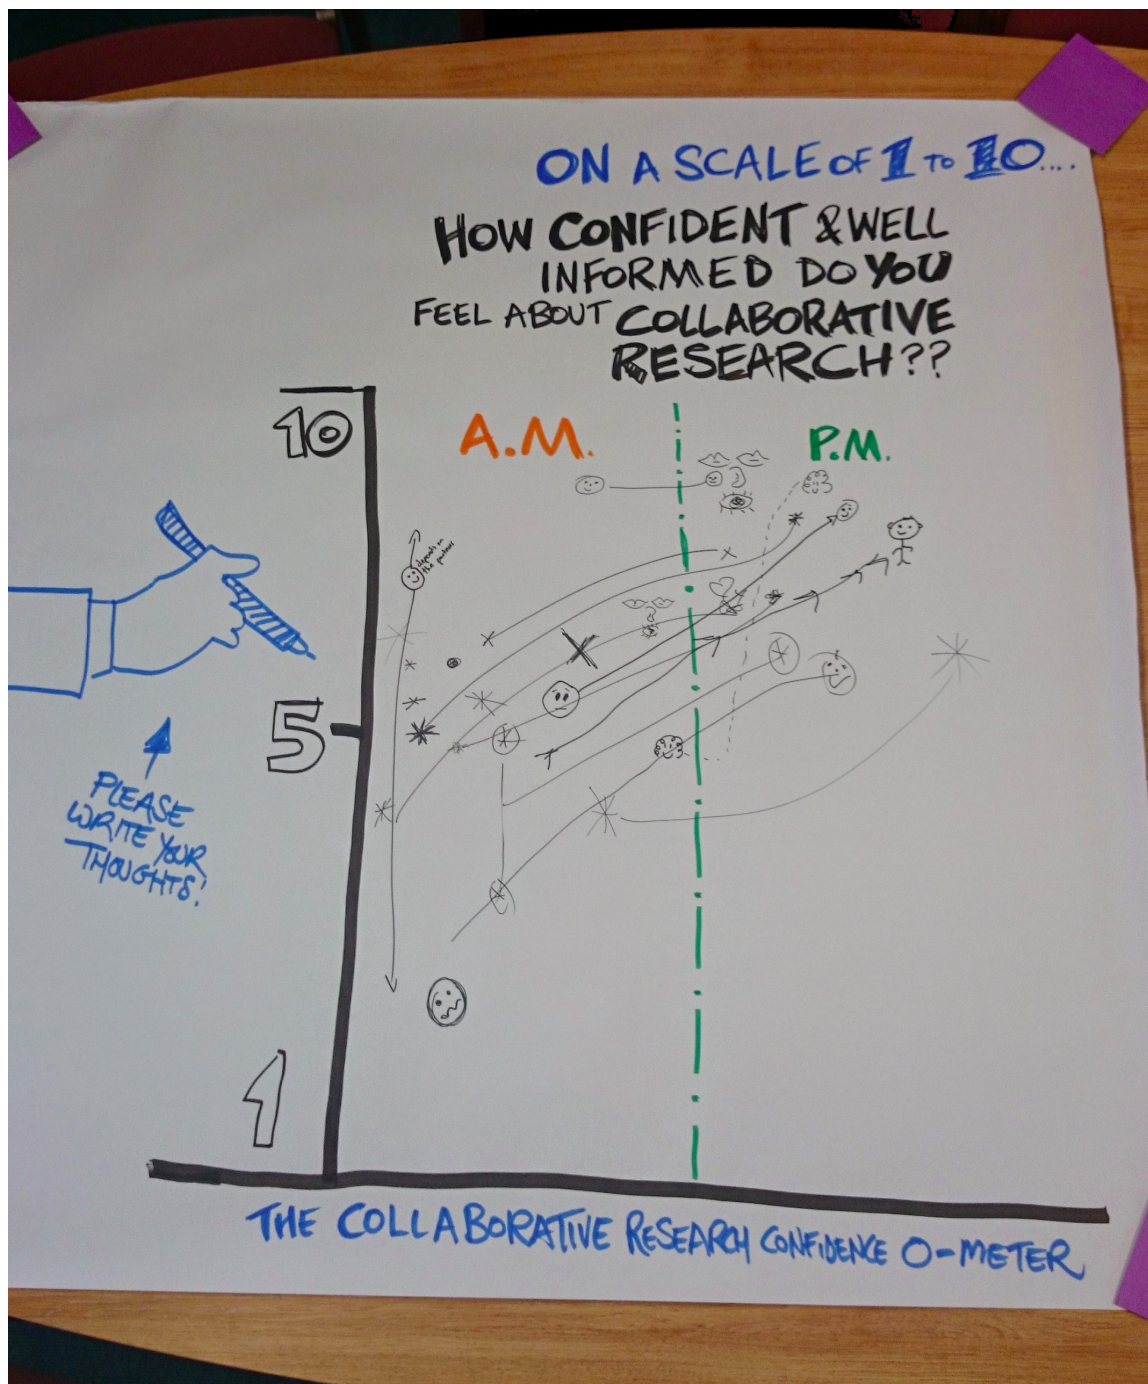 ON A SCALE OF 1 TO 10....
HOW CONFIDENT & WELL
INFORMED DO YOU
FEEL ABOUT COLLABORATIVE
RESEARCH??
10
A.M.
P.M.
depends on
the partner
5
PLEASE
WRITE YOUR
THOUGHTS!
1
THE COLLABORATIVE RESEARCH CONFIDENCE O-METER